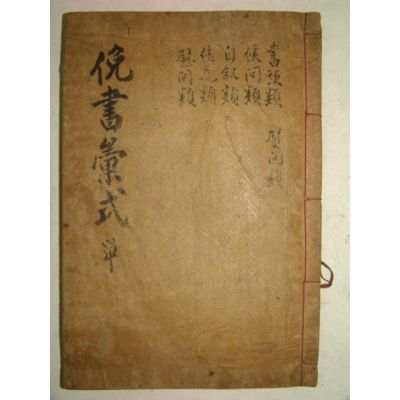 書頭類 賀問類
候問類
自叙類
類
慰問類
俛書彙式 單